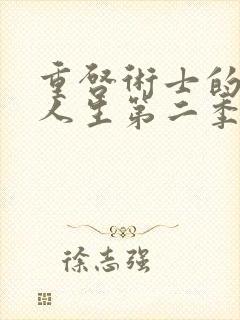 重啓術士的
人生第二季
徐志强